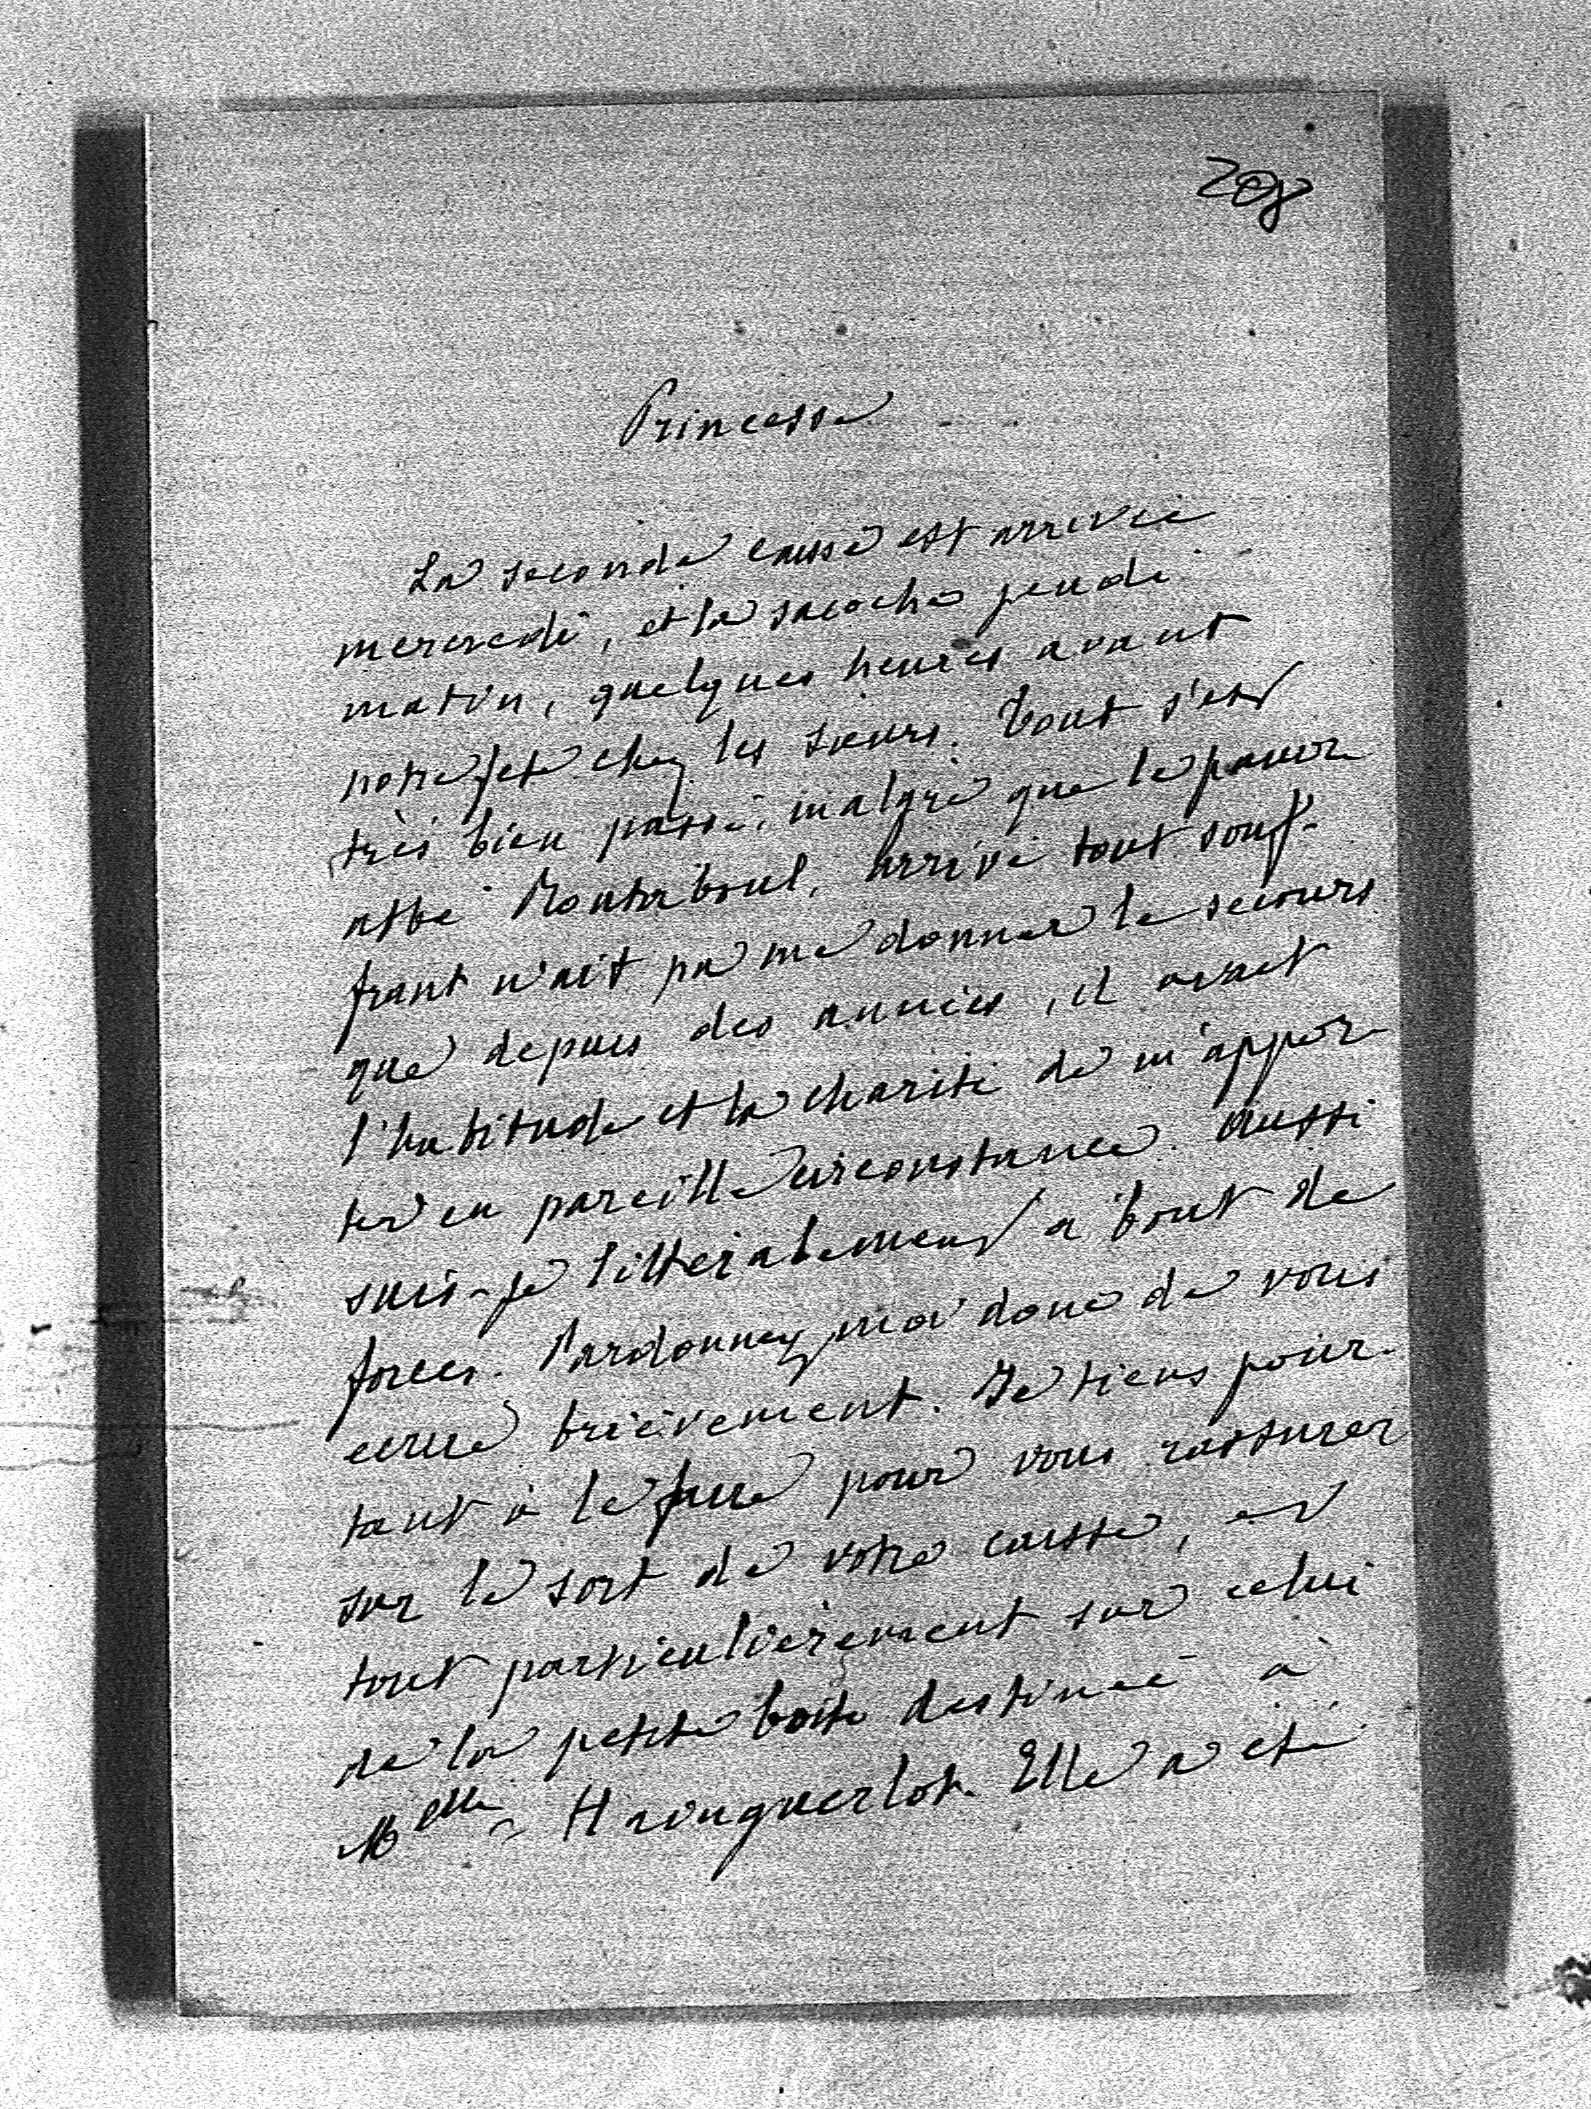 208
Princesse
La seconde caisse est arrivée
mercredi, et la sacoche jeudi
matin, quelques heures avant
notre fete chez les sœurs. Tout s'est
très bien passé, malgré que le pauvre
abbé arrivé tout souf-
frant n'ait pu me donner le secours
que depuis des années, il avait
l'habitude et la charité de m'appor-
ter en pareille circonstance. Aussi
suis-je littéralement à bout de
forces. Pardonnez moi donc de vous
ecrire brièvement. Je tiens pour-
tant à le faire pour vous rassurer
sur le sort de votre caisse, et
tout particulièrement sur celui
de la petite boite destinée à
Melle Hainguerlot. Elle a été